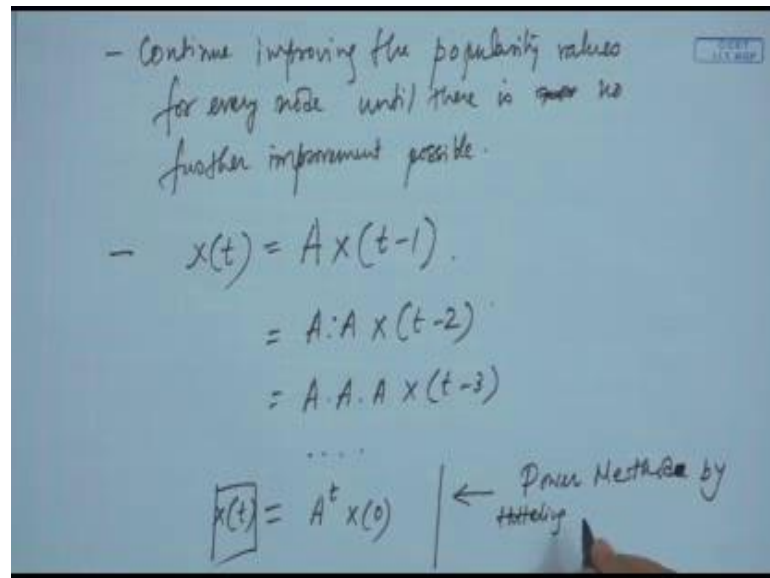 - Continue improving the popularity values
for every node until there is no
further improvement possible.
- x(t) = A x(t-1).
= A.A x(t-2)
= A.A.A x(t-3)
....
x(t) = A^t x(0) | ← Power Method by
Hotteling